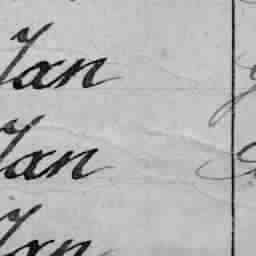 Jan
Jan
Jan